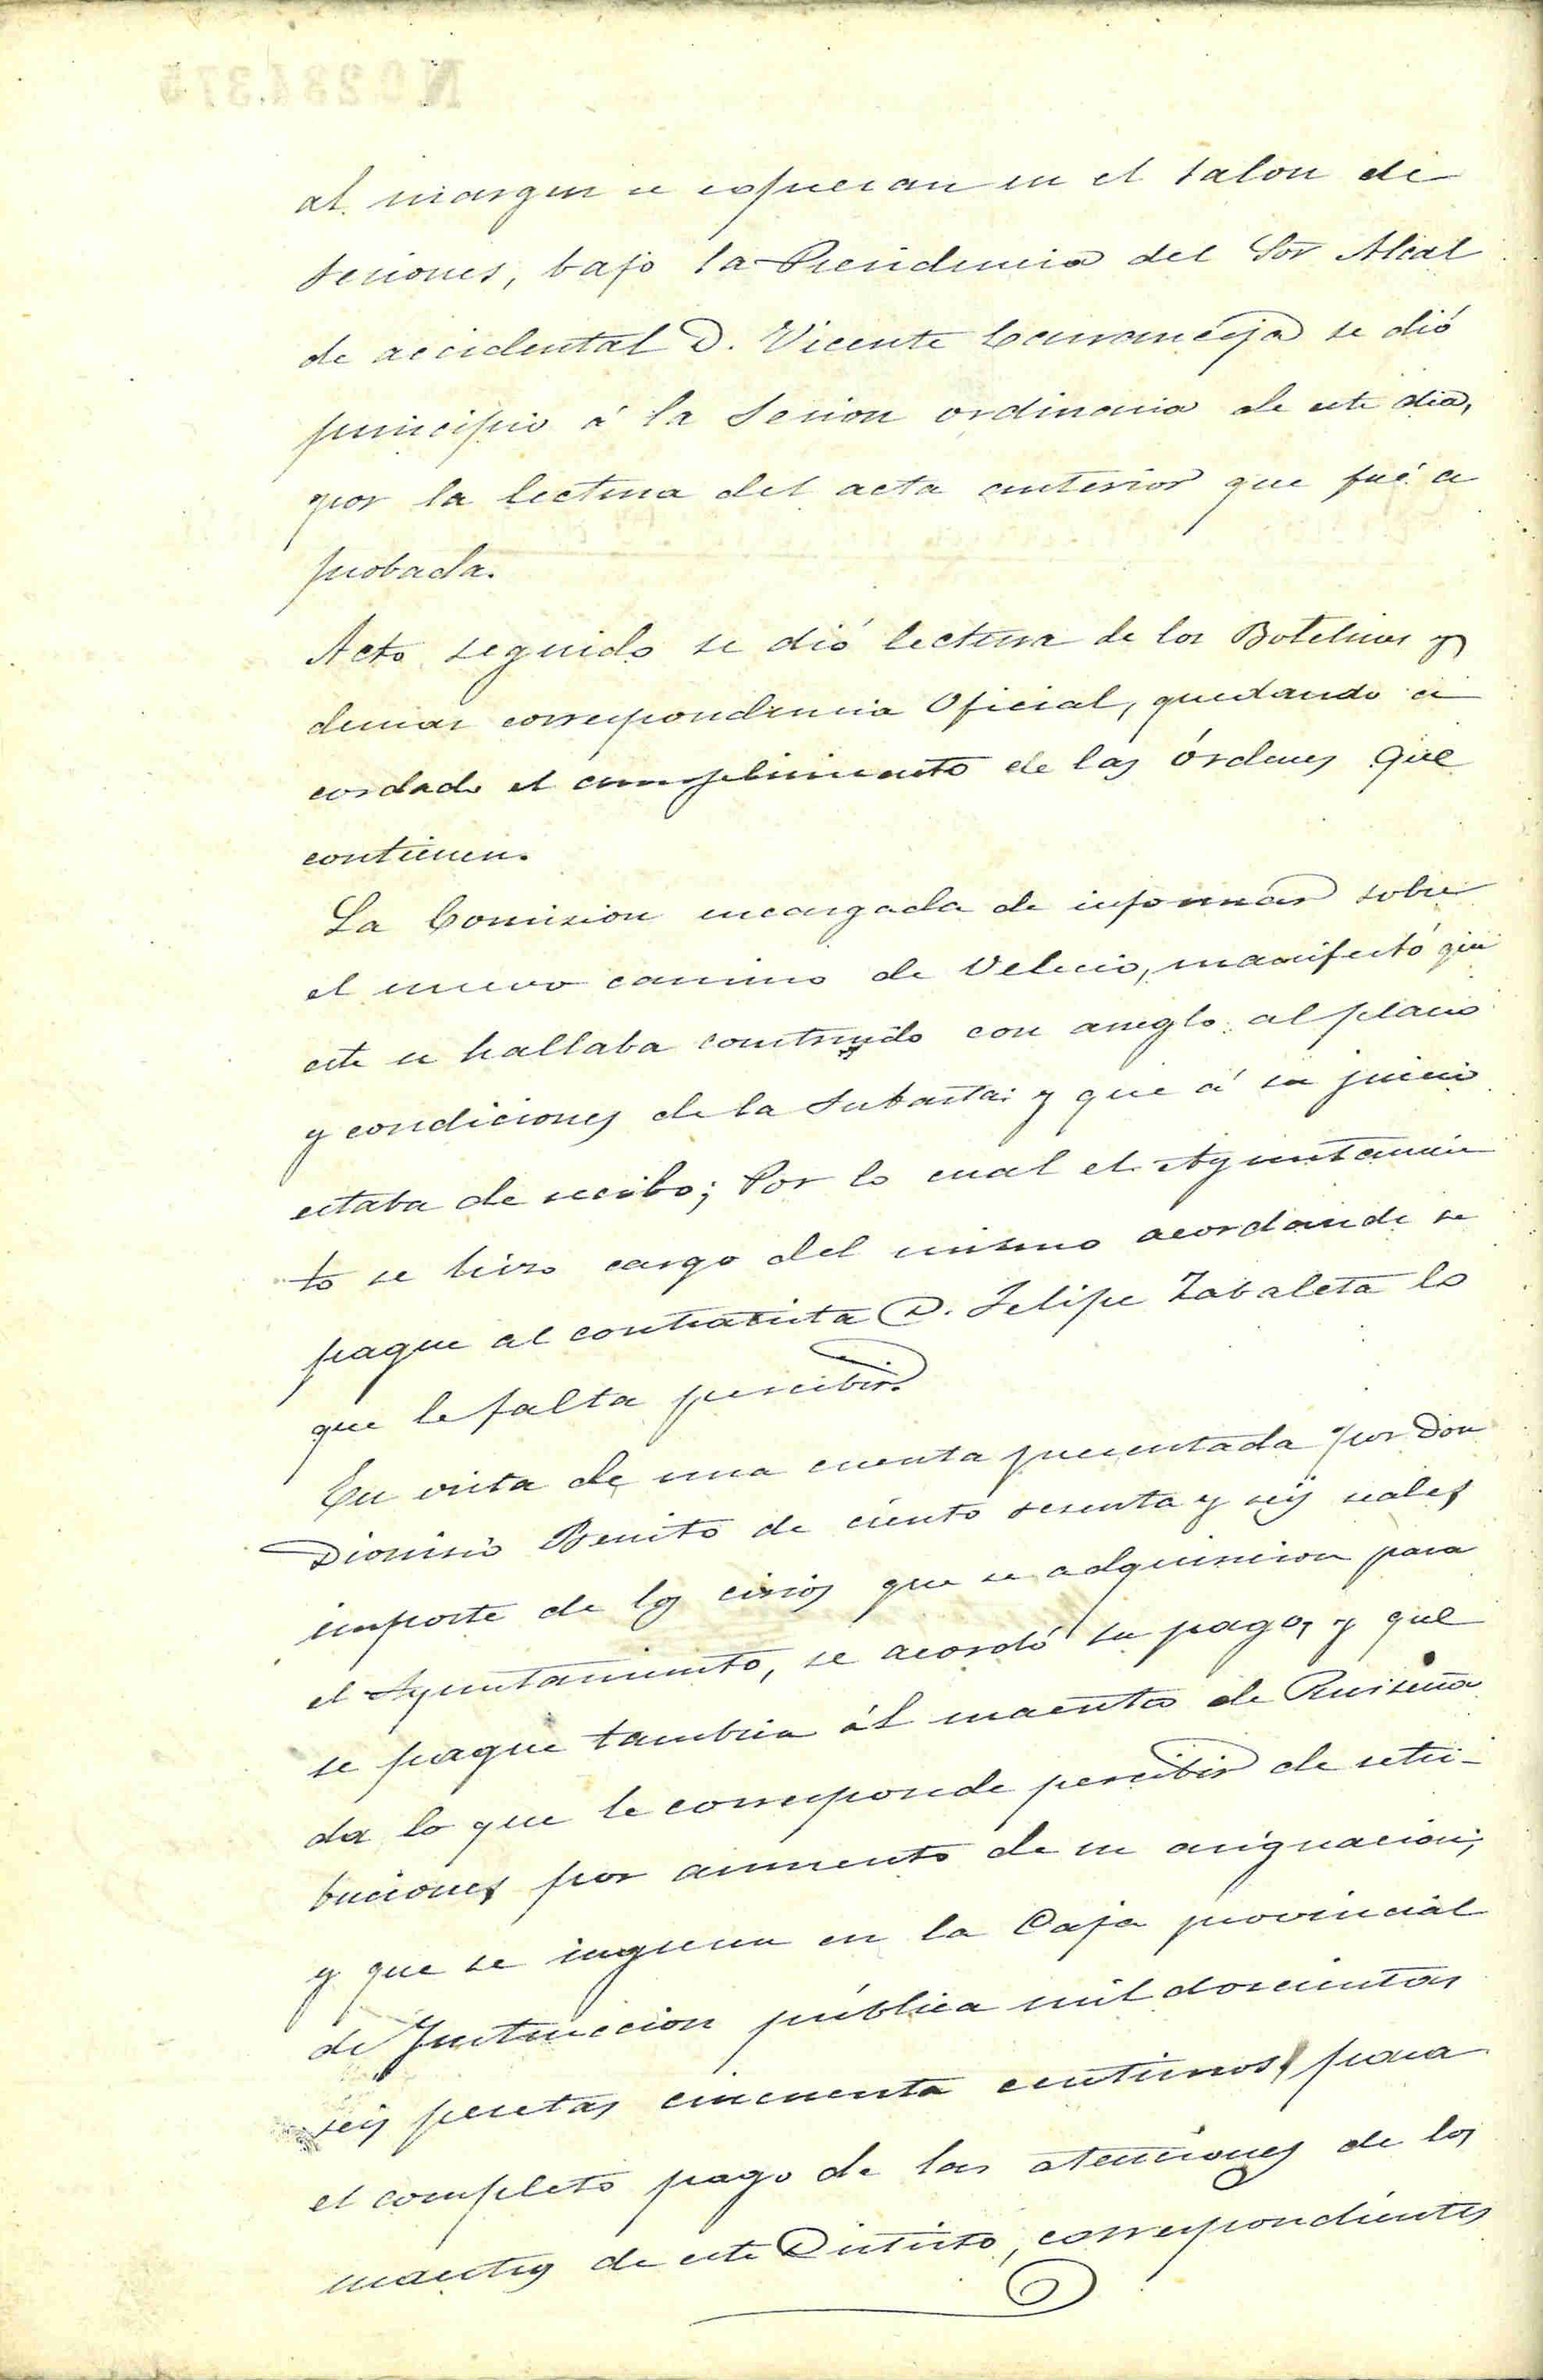 al margen se espresan en el salon de
sesiones, bajo la Presidencia del Sor Alcal
de accidental D. Vicente Carranceja se dió
principio á la sesion ordinaria de este dia,
por la lectura del acta anterior que fué a
probada.
Acto seguido se dió lectura de los Boletines y
demas correspondencia Oficial, quedando a
cordado el cumplimiento de las órdenes que
contienen.
La Comision encargada de informar sobre
el nuevo camino de Velecio, manifestó que
este se hallaba construido con arreglo al plano
y condiciones de la subasta: y que á su juicio
estaba de recibo; Por lo cual el Ayuntamien
to se hizo cargo del mismo acordando se
pague al contratista D. Felipe Zabaleta lo
que le falta percibir.
En vista de una cuenta presentada por Don
Dionisio Benito de ciento sesenta y seis reales
importe de los cirios que se adquirieron para
el Ayuntamiento, se acordó su pago, y que
se pague tambien ál maestro de Ruiseña
da lo que le corresponde percibir de retri-
buciones por aumento de su asignacion;
y que se ingresen en la Caja provincial
de Instruccion pública mil doscientas
seis pesetas cincuenta centimos, para
el completo pago de las atenciones de los
maestros de este Distrito, correspondientes